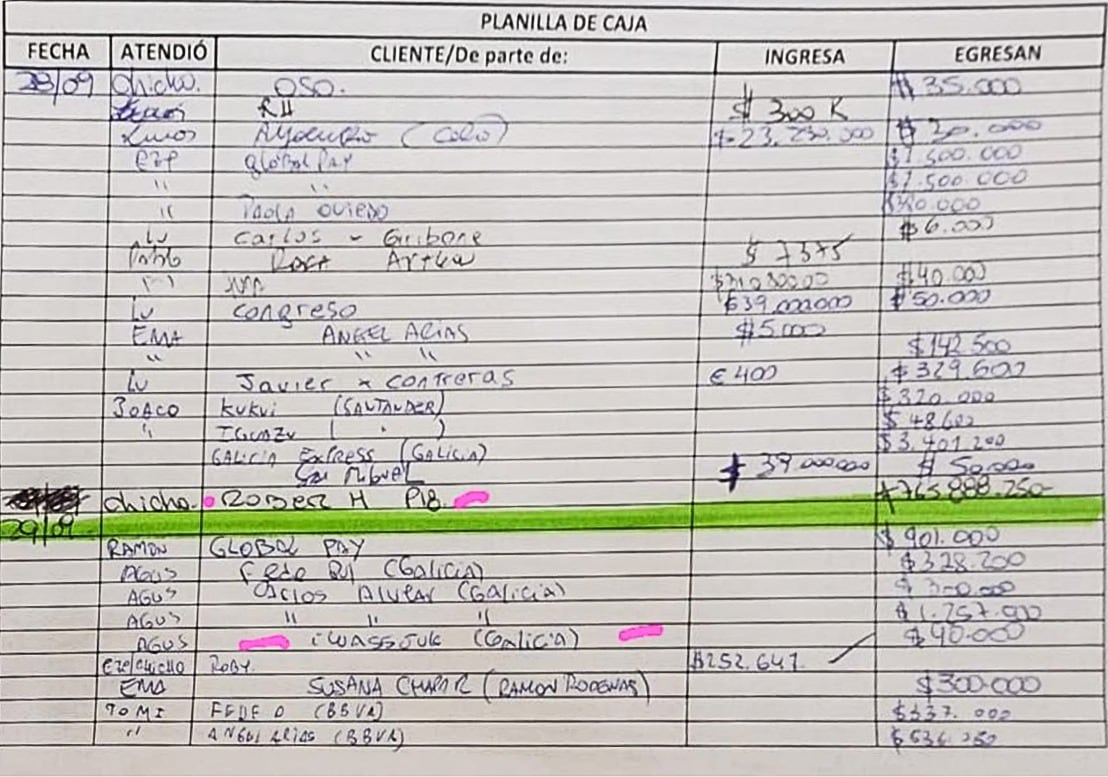 PLANILLA DE CAJA
FECHA ATENDIÓ CLIENTE/De parte de: INGRESA EGRESAN
28/09 Chicho. OSO. $ 35.000
RH $ 300 K
(Colo) $ 23.230.000 $ 20.000
eze global PAY $1.500.000
" " $1.500.000
" Paola Oviedo
Lu Carlos - Giribone $6.000
Pablo $ 7375
$40.000
Lu Congreso $39.000.000 $50.000
EMA ANGEL ARIAS $5.000
" " " $142.500
Lu Javier x Contreras € 400 $329.600
JOACO KUKUI (SANTANDER) $ 320.000
" IGUAZU ( " ) $ 48.600
GALICIA EXPRESS (GALICIA) $3.401.200
San Miguel $ 39.000.000 $ 50.000
Chicho. ROBER H P18 $765.888.250-
29/09
RAMON GLOBAL PAY $ 901.000
AGUS (Galicia) $328.200
AGUS Carlos Alvear (Galicia) $ 300.000
AGUS " " " $1.257.000
AGUS iwassjuk (Galicia) $ 90.000
eze/chicho ROBY. $252.641.
EMA SUSANA CHAPAR (RAMON RODENAS) $300.000
TOMI FEDE O (BBVA) $337.000
" ANGEL ARIAS (BBVA) $536.250